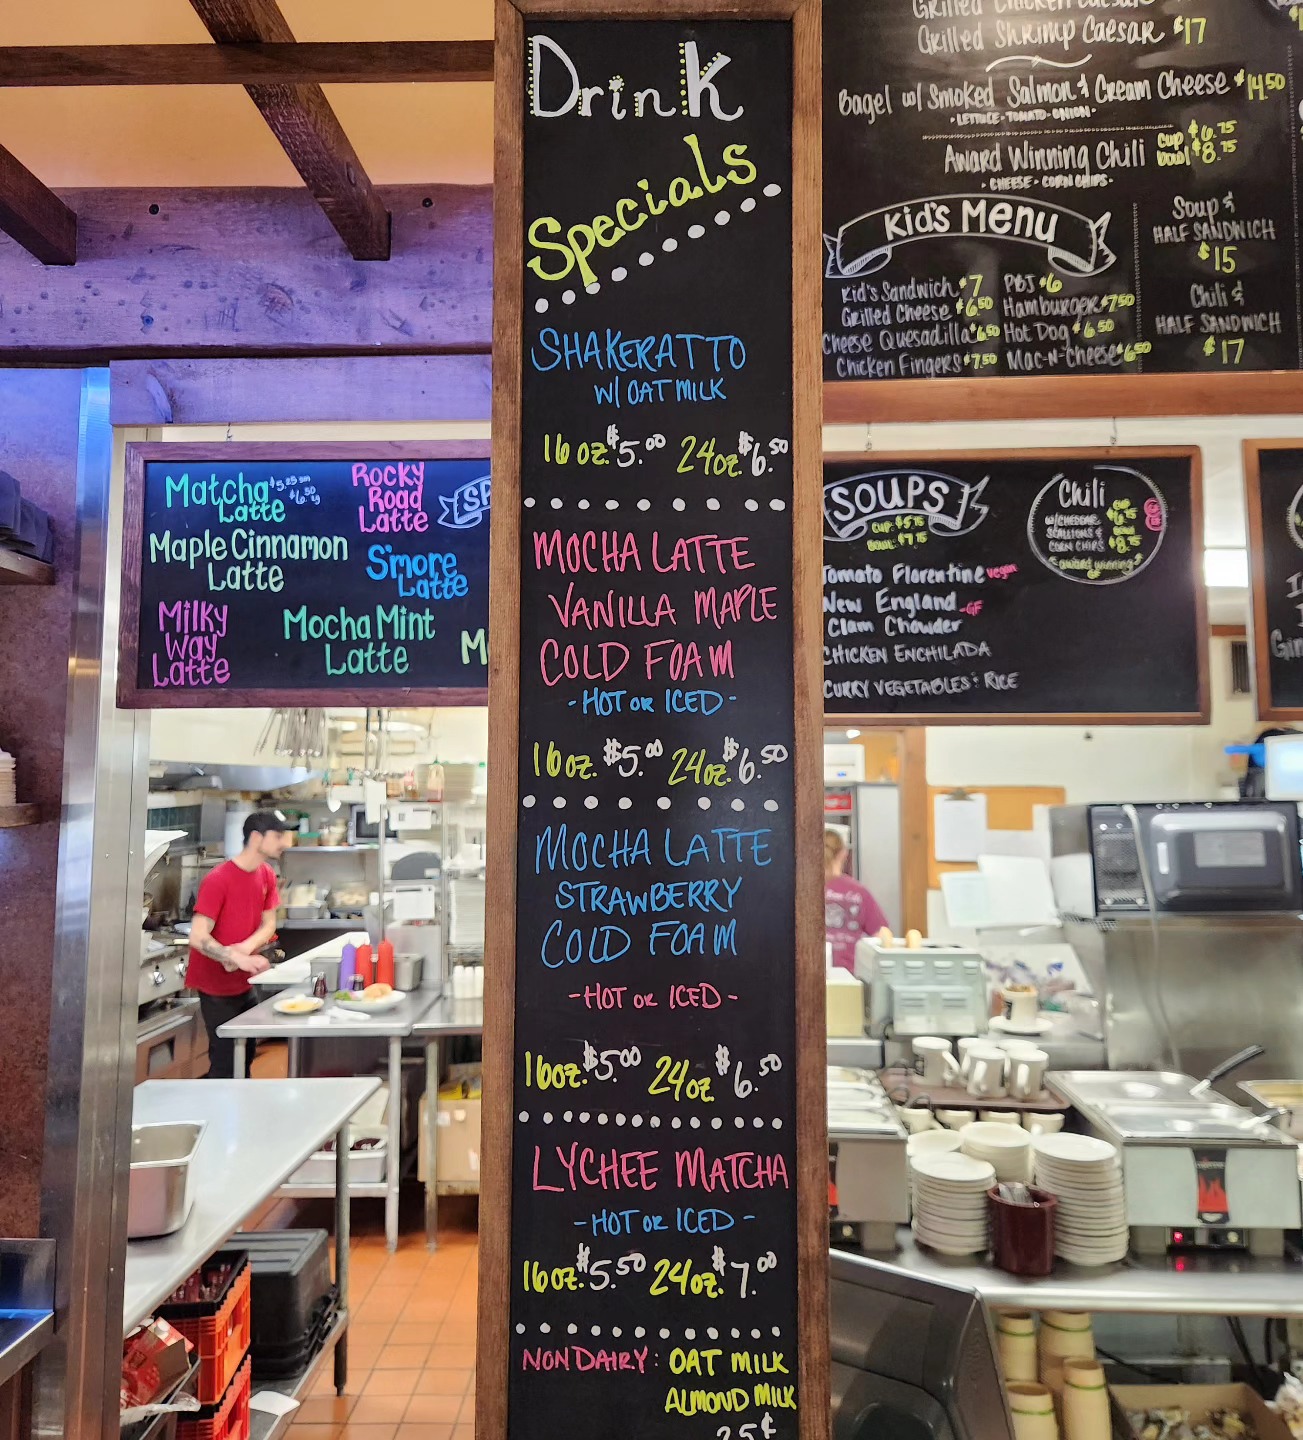 Drink
Specials
SHAKERATTO
W/ OAT MILK
16 oz. $5.00 24oz. $6.50
MOCHA LATTE
VANILLA MAPLE
COLD FOAM
-HOT or ICED-
16oz. $5.00 24oz. $6.50
MOCHA LATTE
STRAWBERRY
COLD FOAM
-HOT or ICED-
16oz. $5.00 24oz. $6.50
LYCHEE MATCHA
-HOT or ICED-
16oz. $5.50 24oz. $7.00
NON DAIRY: OAT MILK
ALMOND MILK
25¢
Matcha
Latte
Rocky
Road
Latte
SP
Maple Cinnamon
Latte
S'more
Latte
Milky
Way
Latte
Mocha Mint
Latte
M
Grilled Chicken Caesar
Grilled Shrimp Caesar $17
Bagel w/ Smoked Salmon & Cream Cheese $14.50
·LETTUCE·TOMATO·ONION·
Award Winning Chili cup $6.75
bowl $8.75
·CHEESE·CORN CHIPS·
Kid's Menu
Kid's Sandwich $7
Grilled Cheese $6.50
Cheese Quesadilla $6.50
Chicken Fingers $7.50
PBJ $6
Hamburger $7.50
Hot Dog $6.50
Mac-N-Cheese $6.50
Soup &
HALF SANDWICH
$15
Chili &
HALF SANDWICH
$17
SOUPS
CUP: $5.75
BOWL: $7.75
Tomato Florentine vegan
New England -GF
Clam Chowder
CHICKEN ENCHILADA
CURRY VEGETABLES & RICE
Chili
W/CHEDDAR
SCALLIONS &
CORN CHIPS
CUP
$6.75
BOWL
$8.75
award winning